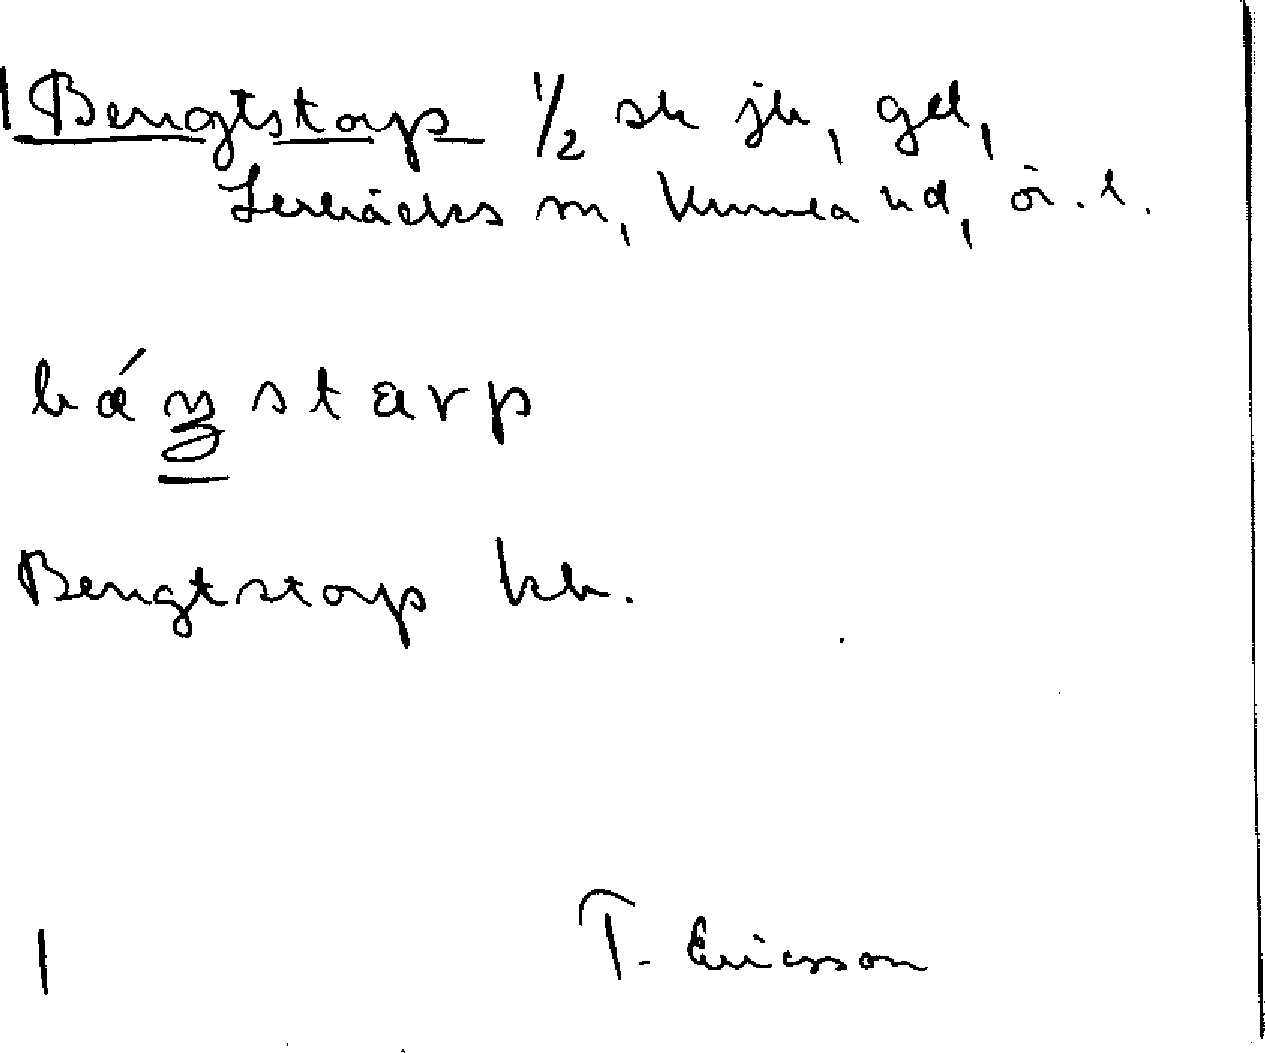 Bengtstorp 1/2 sk jb, gd,
Lerbäcks sn, Kumla hd, ör. l.
bä́ŋstarp
Bengtstorp kb.
T. Ericsson